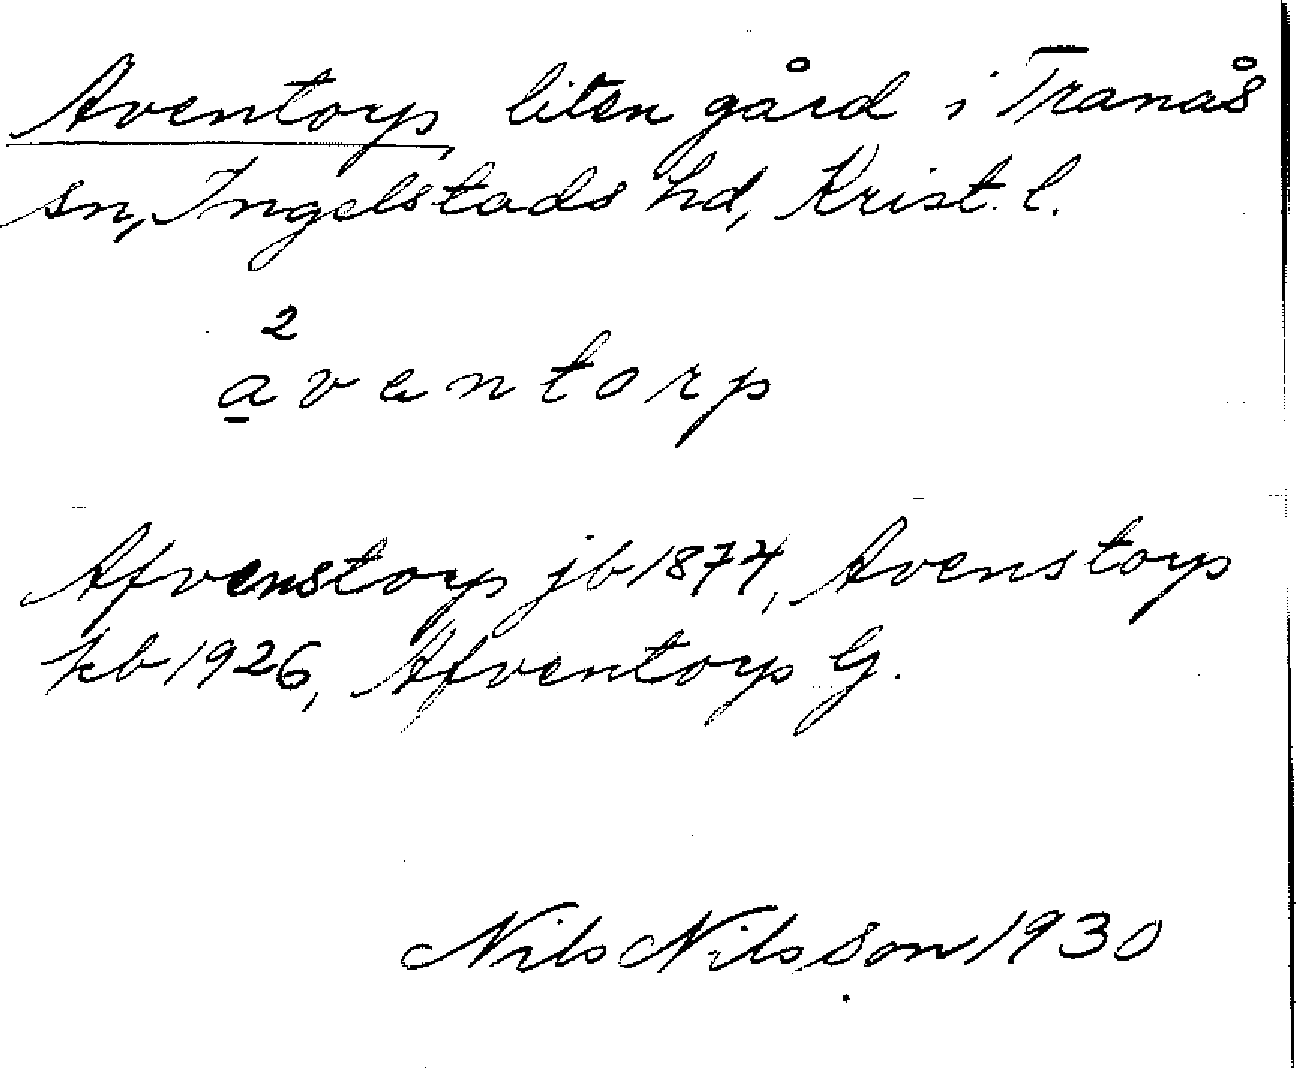 Aventorp, liten gård i Tranås
sn, Ingelstads hd, Krist. l.
2
a̲ventorp
Afvenstorp jb 1874, Avenstorp
kb 1926, Afventorp G.
Nils Nilsson 1930